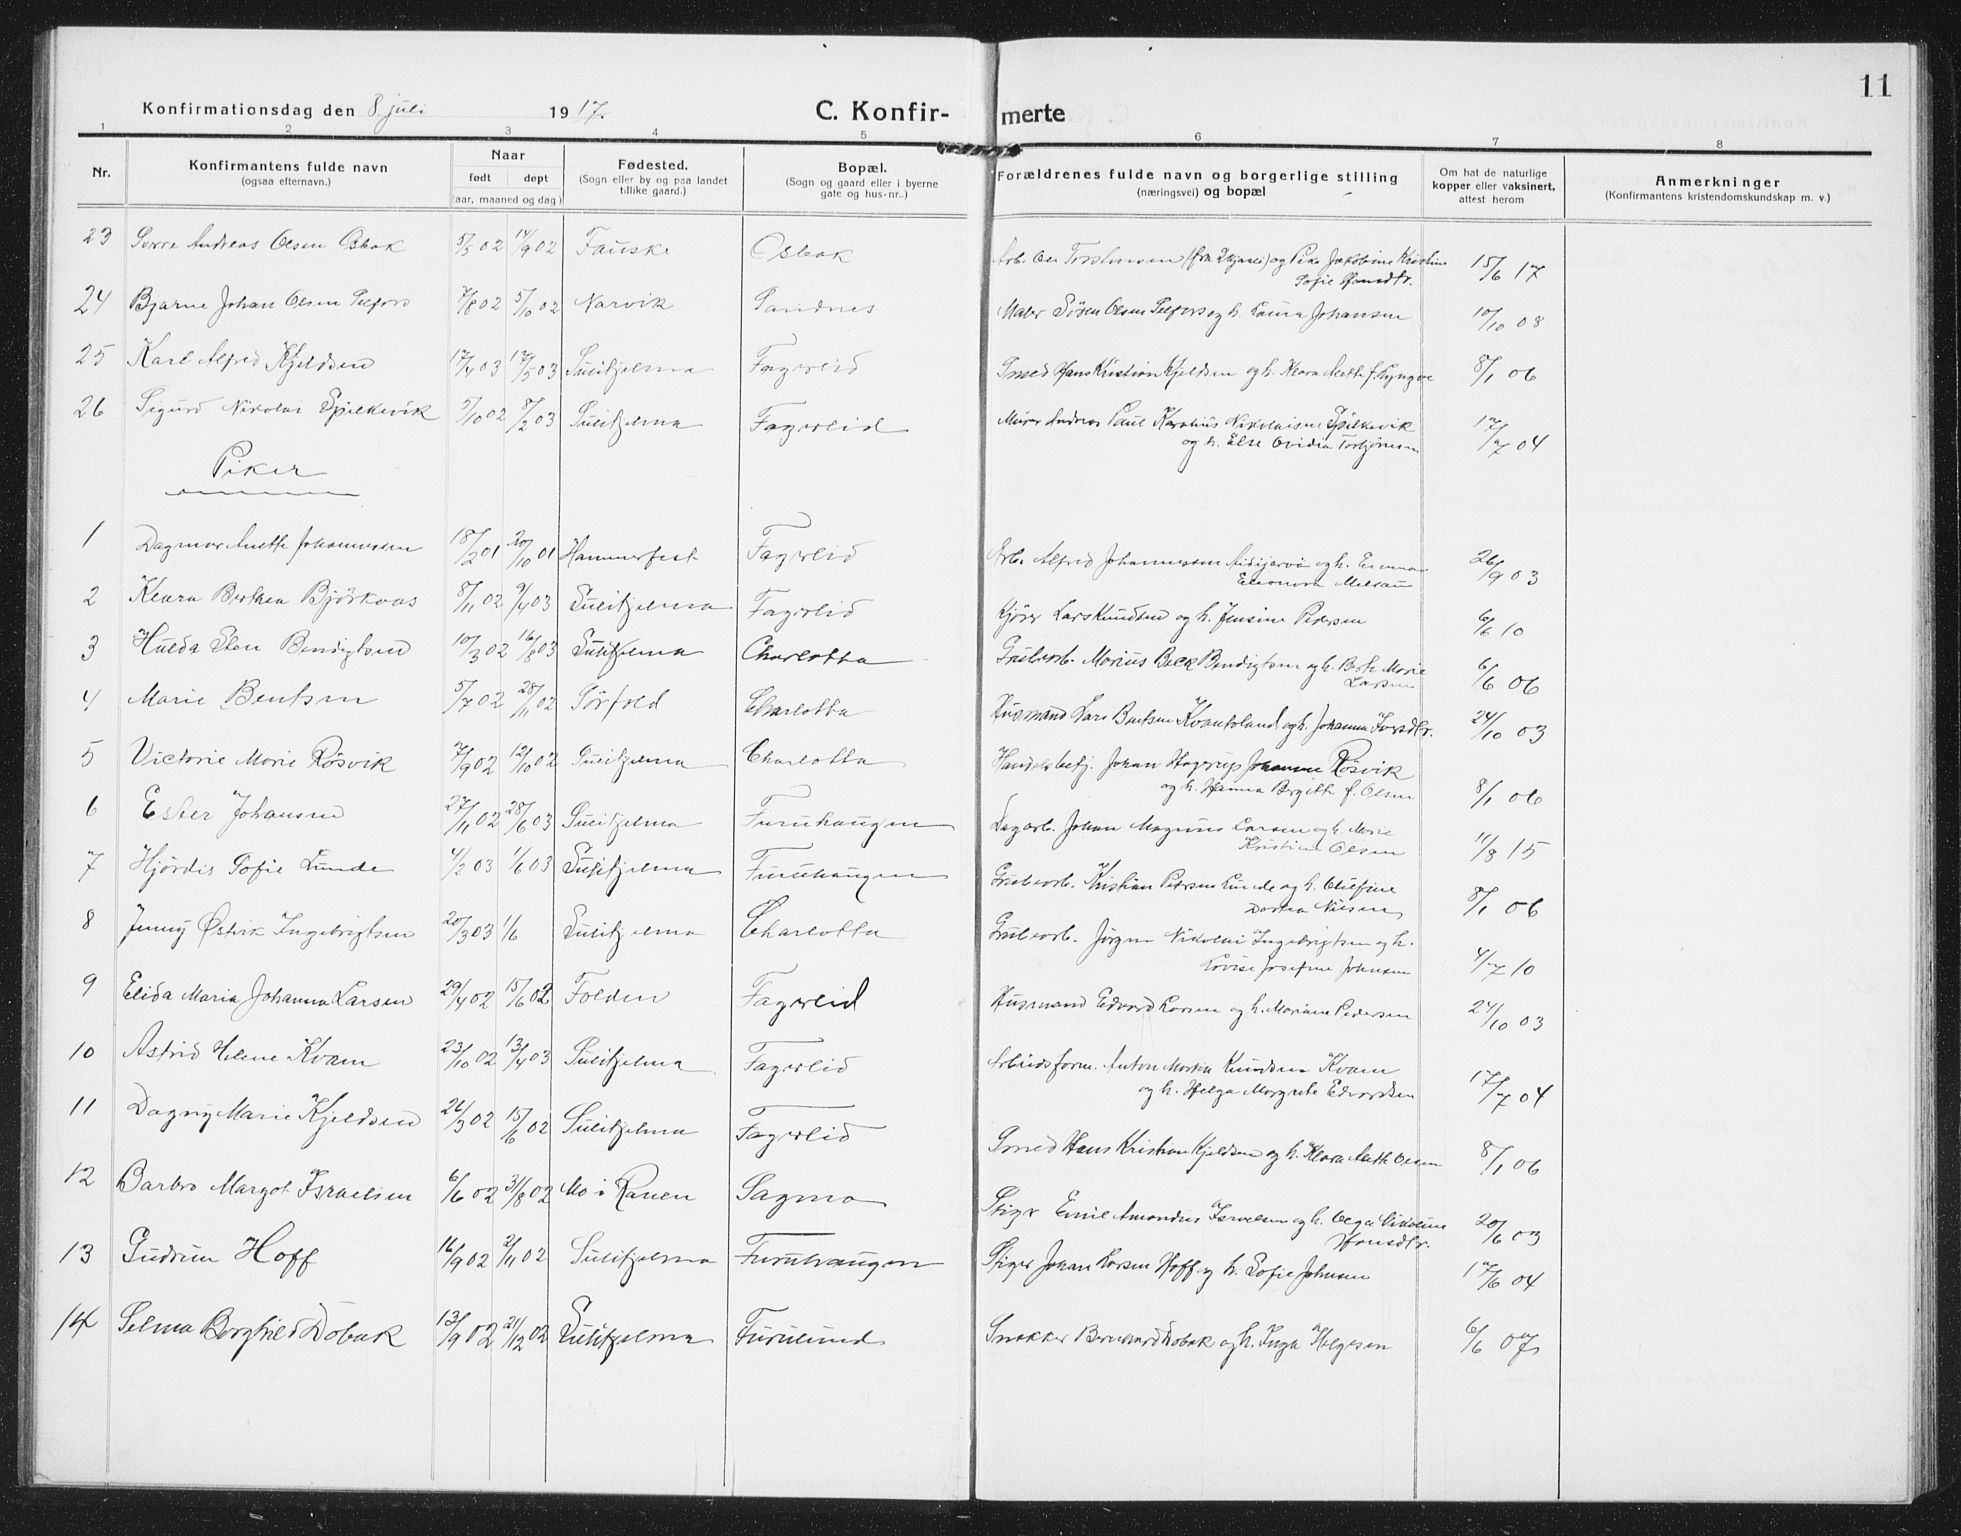 11
Konfirmationsdag den 8. juli 1917. C. Konfirmerte
1 2 3 4 5 6 7 8
Nr. Konfirmantens fulde navn (ogsaa efternavn.) Naar født dept (aar, maaned og dag) Fødested. (Sogn eller by og paa landet tillike gaard.) Bopæl. (Sogn og gaard eller i byerne gate og hus-nr.) Forældrenes fulde navn og borgerlige stilling (næringsvei) og bopæl Om hat de naturlige kopper eller vaksinert, attest herom Anmerkninger (Konfirmantens kristendomskundskap m. v.)
23 Andreas Olsen Osbak 5/5 02 14/9 02 Fauske Osbak Arb. Ole og Pike Jakobine Kristine 15/6 17
Sofie Hansdtr.
24 Bjarne Johan Olsen 7/8 02 5/10 02 Narvik Sandnes Maler Søren Olsen og h. Laura Johansen 10/10 08
25 Karl Alfred Kjeldsen 17/4 03 17/5 03 Sulitjelma Fagerlid Smed Hans Kristian Kjeldsen og h. Klara Anette f. Lyngve 8/1 06
26 Sigurd Nikolai Spilkevik 5/10 02 8/2 03 Sulitjelma Fagerlid Murer Andreas Paul Karolius Nikolaisen Spilkevik 17/7 04
og h. Else Ovidia Torbjørnsen
Piker
1 Dagmar Anette Johannessen 18/2 01 20/10 01 Hammerfest Fagerlid Arb. Alfred Johannessen og h. Emma 26/9 03
Eleonora
2 Klara Berthea Bjørkaas 8/11 02 9/4 03 Sulitjelma Fagerlid Kjører Lars Knudsen og h. Jensine Pedersen 6/6 10
3 Hulda Sten Bendigtsen 10/3 02 16/8 03 Sulitjelma Charlotta Grubearb. Marius Beck Bendigtsen og h. Berte Marie 6/6 06
Larsen
4 Marie Bentsen 5/7 02 28/11 02 Sørfold Charlotta Husmand Lars Bentsen Kvantoland og h. Johanna Iversdtr. 24/10 03
5 Victorie Marie Røsvik 7/9 02 12/10 02 Sulitjelma Charlotta Handelsbetj. Johan Hagerup Johansen Røsvik
og h. Hanna Birgitte f. Olsen 8/1 06
6 Ester Johansen 27/11 02 28/6 03 Sulitjelma Furuhaugen Dagarb. Johan Magnus Larsen og h. Marie
Kristine Olsen 11/8 15
7 Hjørdis Sofie Lunde 4/2 03 1/6 03 Sulitjelma Furuhaugen Grubearb. Kristian Pedersen Lunde og h. Olufine
Dortea Nilsen 8/1 06
8 Jenny Østvik Ingebrigtsen 20/3 03 1/6 Sulitjelma Charlotta Grubearb. Jørgen Nikolai Ingebrigtsen og h.
Lovise Josefine Johnsen 4/7 10
9 Elida Maria Johanna Larsen 29/4 02 15/6 02 Folden Fagerlid Husmand Edvard Larsen og h. Mariane Pedersen 24/10 03
10 Astrid Helene Kvam 23/10 02 13/4 03 Sulitjelma Fagerlid Arbeidsform. Anton Martin Knudsen Kvam
og h. Helga Margrete Edvardsen 17/7 04
11 Dagny Marie Kjeldsen 26/3 02 15/6 02 Sulitjelma Fagerlid Smed Hans Kristian Kjeldsen og h. Klara Anette Olsen 8/1 06
12 Barbro Margot Israelsen 6/6 02 31/8 02 Mo i Ranen Sagmo Stiger Emil Amandus Israelsen og h. Olga Nikoline 20/6 03
Hansdtr.
13 Gudrun Hoff 16/9 02 2/11 02 Sulitjelma Furuhaugen Stiger Johan Larsen Hoff og h. Sofie Johnsen 17/6 04
14 Selma Borghild Dobak 13/9 02 21/12 02 Sulitjelma Furulund Snekker Bernhard Dobak og h. Inga Helgesen 6/6 07